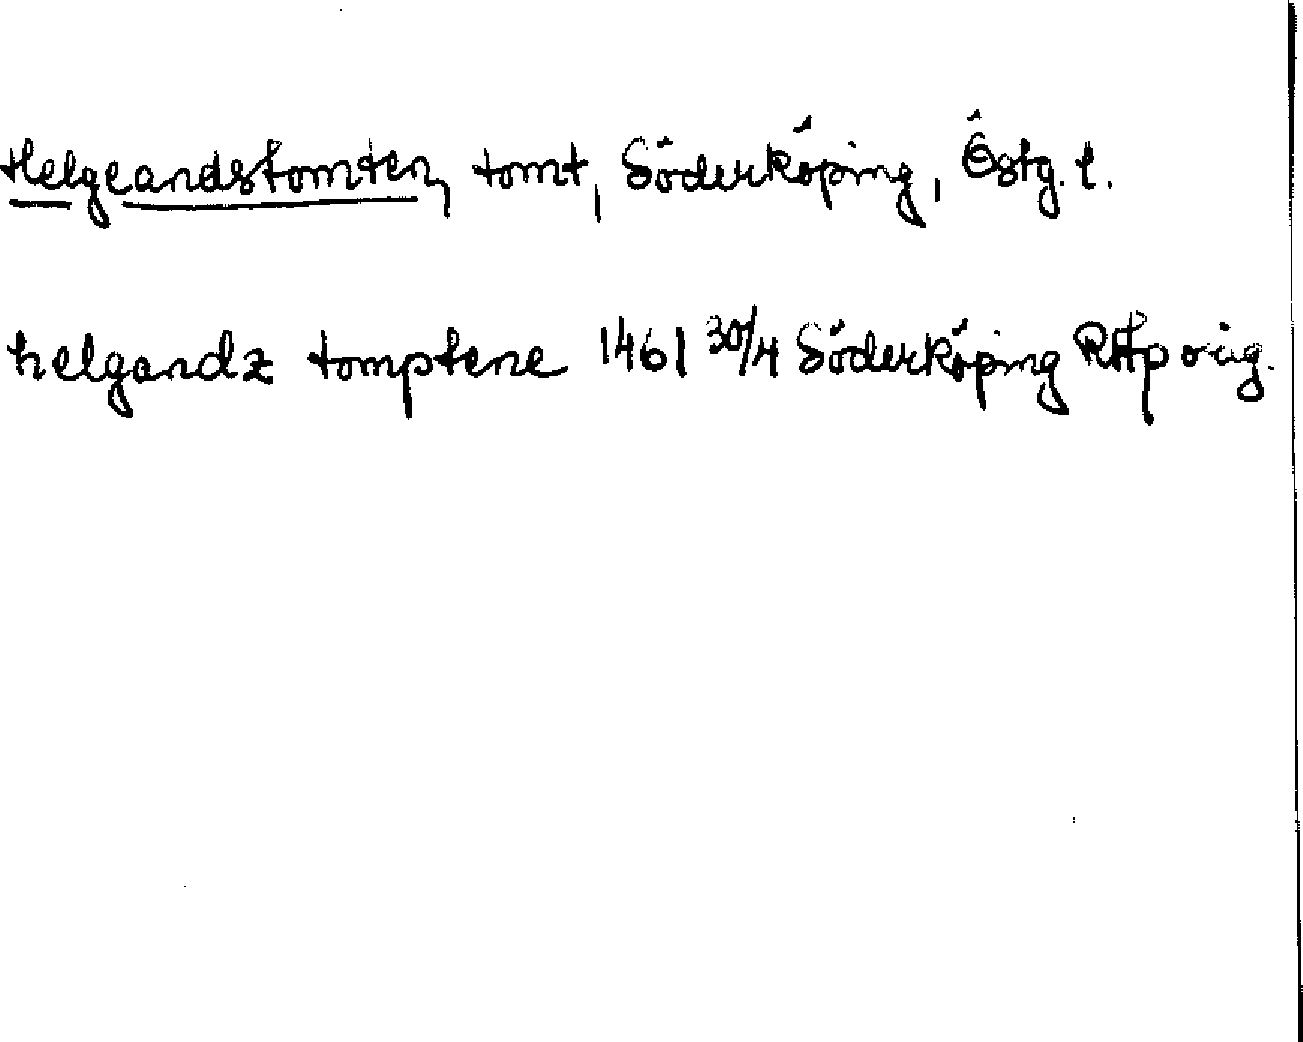 Helgeandstomten, tomt, Söderköping, Östg. l.
helgandz tomptene 1461 30/4 Söderköping RAp orig.